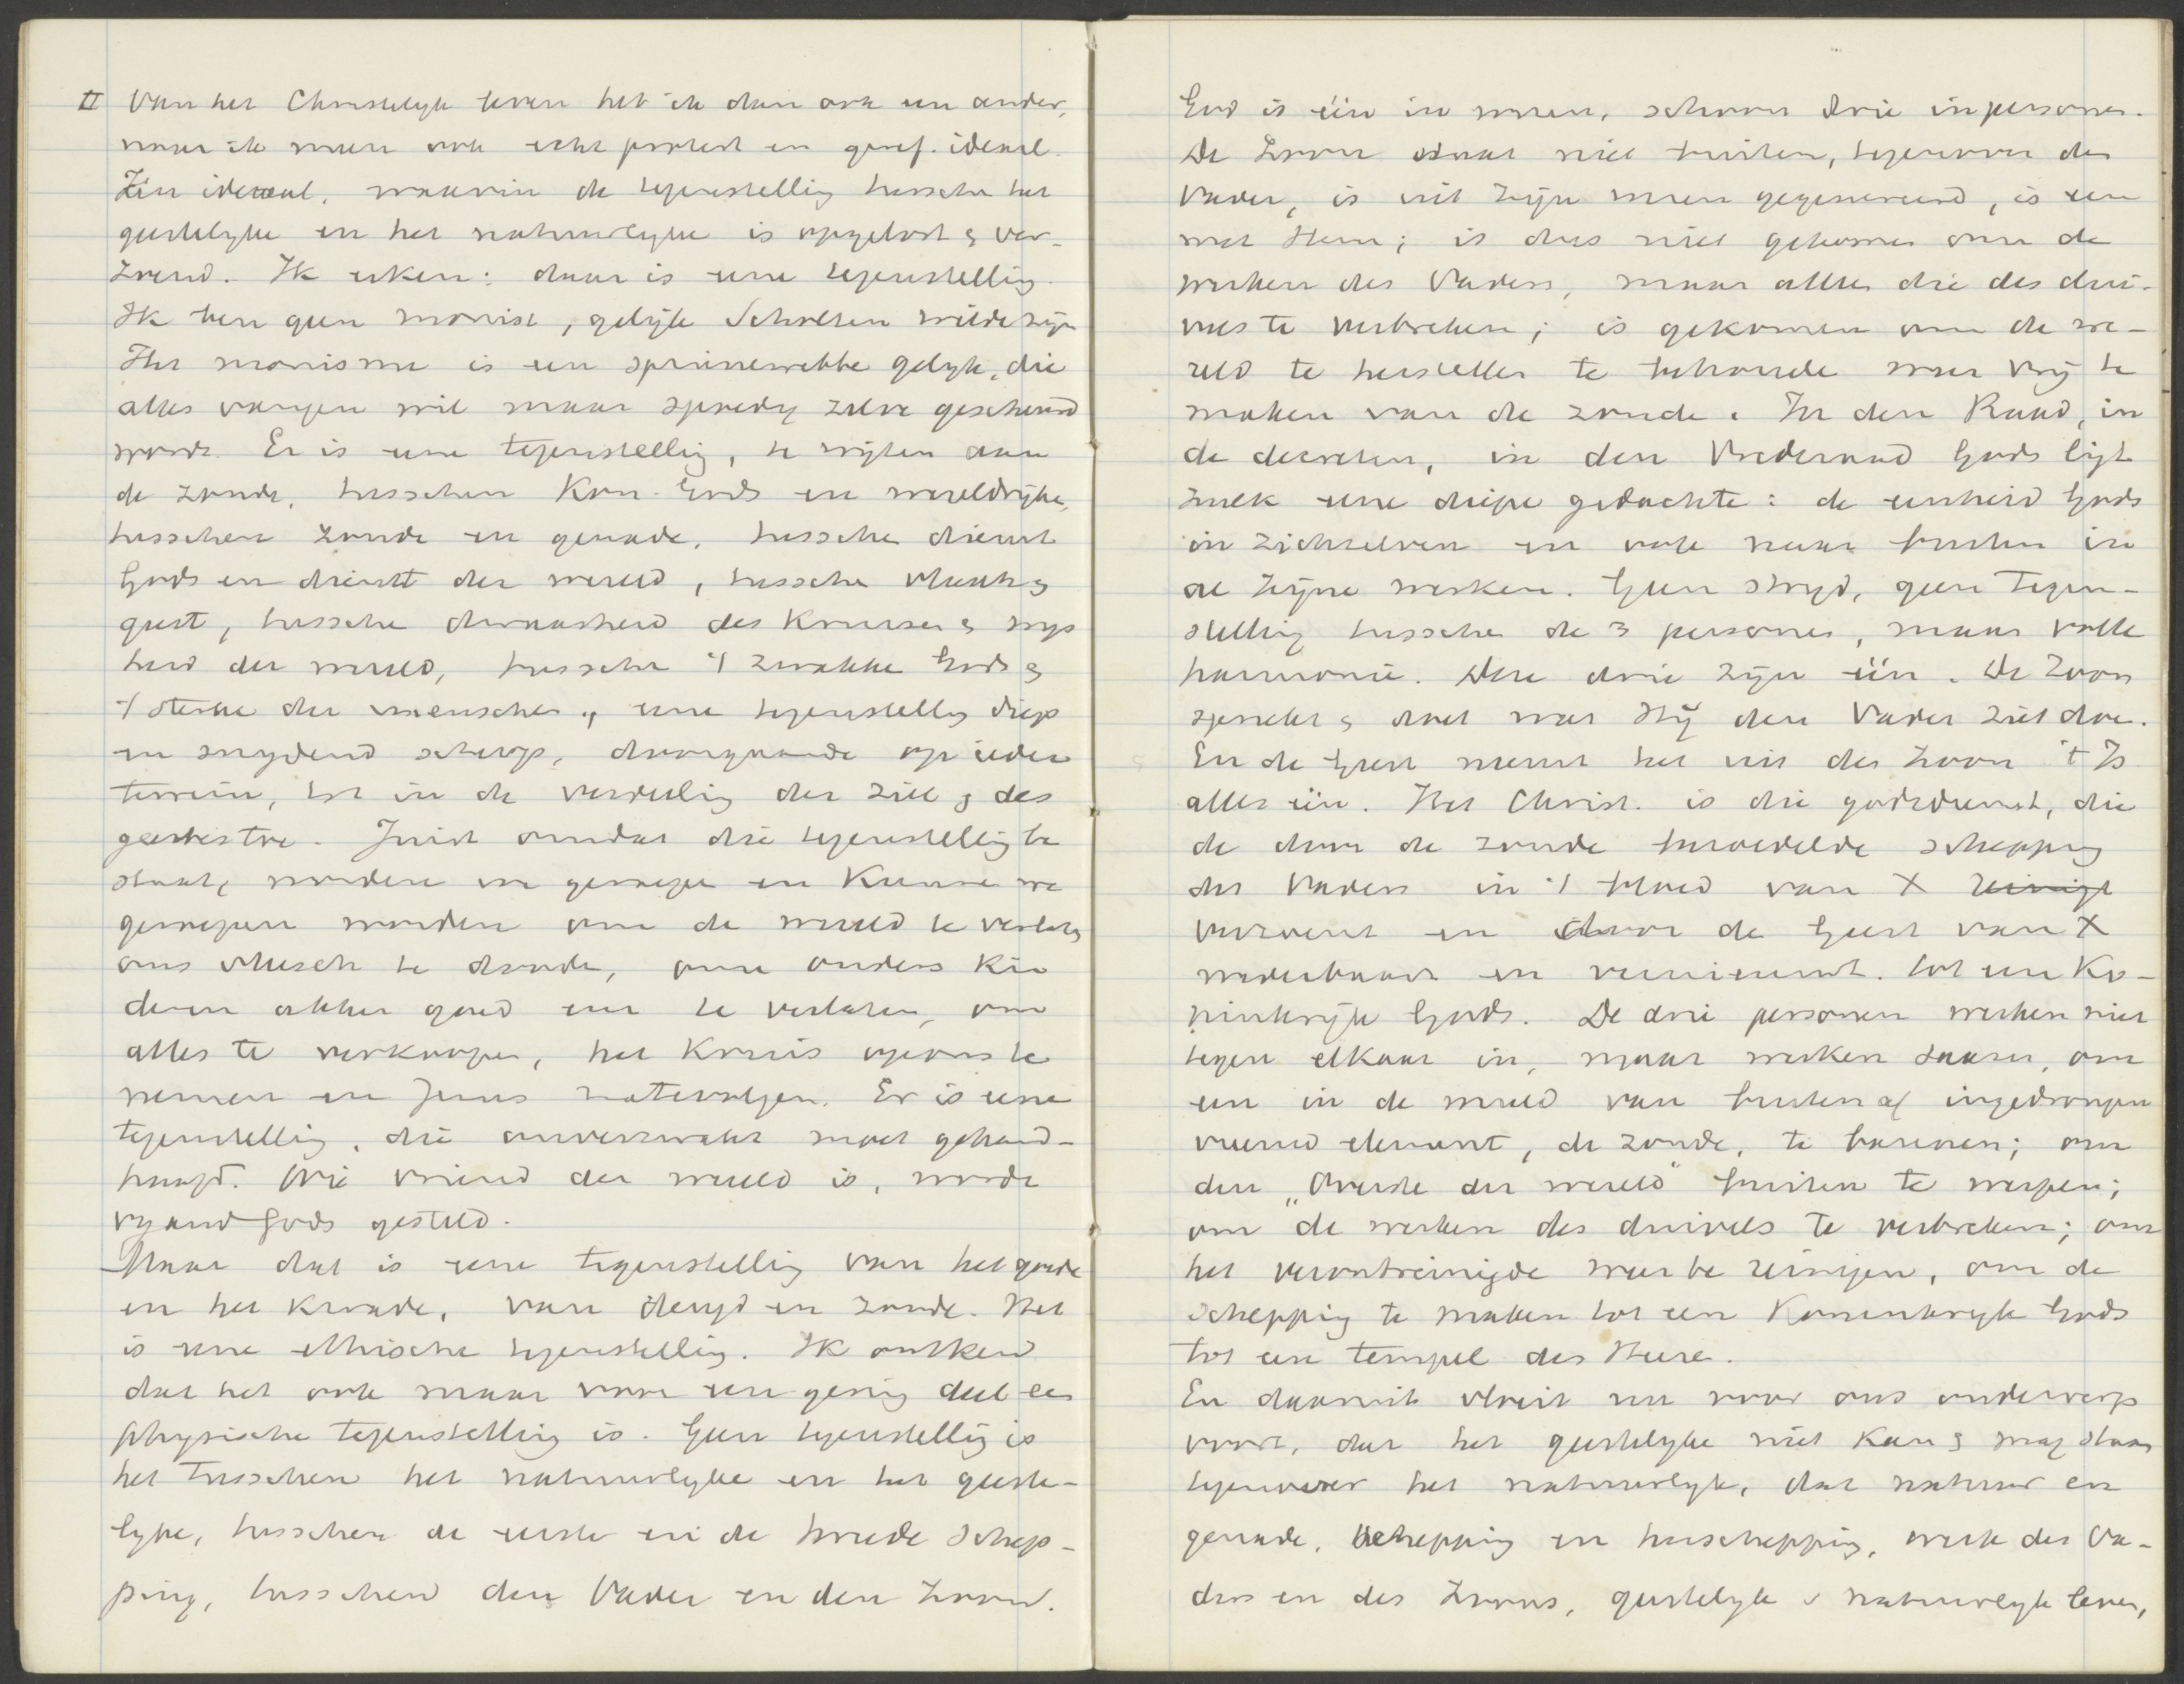 II Van het Christelyk leven heb ik dan ook een ander,
naar ik meen ook echt protest en geref. ideaal.
Een ideaal, waarin de tegenstelling tusschen het
geestelyke en het natuurlyke is opgelost & ver-
zoend. Ik erken: daar is eene tegenstelling.
Ik ben geen monist, gelijk Scholten wilde zijn
Het monisme is een spinnewebbe gelyk, die
alles vangen wil maar spoedig zelve gescheurd
wordt. Er is eene tegenstelling, te wijten aan
de zonde, tusschen Kon. Gods en wereldrijke,
tusschen zonde en genade, tussche dienst
Gods en dienst der wereld, tussche vleesch &
geest, tussche dwaasheid des Kruises & wys
heid der wereld, tussche 't zwakke Gods &
't sterke der menschen, eene tegenstelling diep
en snydend scherp, doorgaande op ieder
terrein, tot in de verdeeling der ziel & des
geestes toe. Juist omdat die tegenstelling be
staat, worden we geroepen en Kunnen we
geroepen worden om de wereld te verlaten
ons vleesch te dooden, om ouders kin
deren akker goed eer te verlaten, om
alles te verkoopen, het Kruis op ons te
nemen en Jezus na te volgen. Er is eene
tegenstelling, die onverzwakt moet gehand-
haafd. Wie vriend der wereld is, wordt
vyand Gods gesteld.
Maar dat is eene tegenstelling van het goede
en het Kwade, van deugd en zonde. Het
is eene ethische tegenstelling. Ik ontken
dat het ook maar voor een gering deel een
physische tegenstelling is. Geen tegenstelling is
het tusschen het natuurlyke en het geeste-
lyke, tusschen de eerste en de tweede schep-
ping, tusschen den Vader en den Zoon.
God is één in wezen, schoon drie in personen.
De Zoon staat niet buiten, tegenover den
Vader, is uit zijn wezen gegenereerd, is een
met Hem; is dus niet gekomen om de
werken des Vaders, maar alleen die des dui-
vels te verbreken; is gekomen om de we-
reld te herstellen te behouden weer vrij te
maken van de zonde. In den Raad, in
de decreten, in den Vrederaad Gods ligt
zulk eene diepe gedachte: de eenheid Gods
in zichzelven en ook naar buiten in
al zijne werken. Geen stryd, geen tegen-
stelling tusschen de 3 personen, maar volle
harmonie. Deze drie zijn één. De Zoon
spreekt & doet wat Hij den Vader ziet doen.
En de Geest neemt het uit den Zoon 't Is
alles één. Het Christ. is die godsdienst, die
de door de zonde bezoedelde schepping
des Vaders in 't bloed van X reinigt
verzoent en door de Geest van X
wederbaart en vernieuwt. tot een Ko-
ninkrijk Gods. De drie personen werken niet
tegen elkaar in, maar werken samen, om
een in de wereld van buiten af ingedrongen
vreemd element, de zonde, te bannen; om
den „Overste der wereld" buiten te werpen;
om de werken des duivels te verbreken; om
het verontreinigde weer te reinigen, om de
Schepping te maken tot een Koninkryk Gods
tot een tempel des Heren.
En daaruit vloeit nu voor ons onderwerp
voort, dat het geestelyke niet kan & mag staan
tegenover het natuurlyk, dat natuur en
genade, schepping en herschepping, werk des Va-
ders en des Zoons, geestelyk & natuurlyk leven,